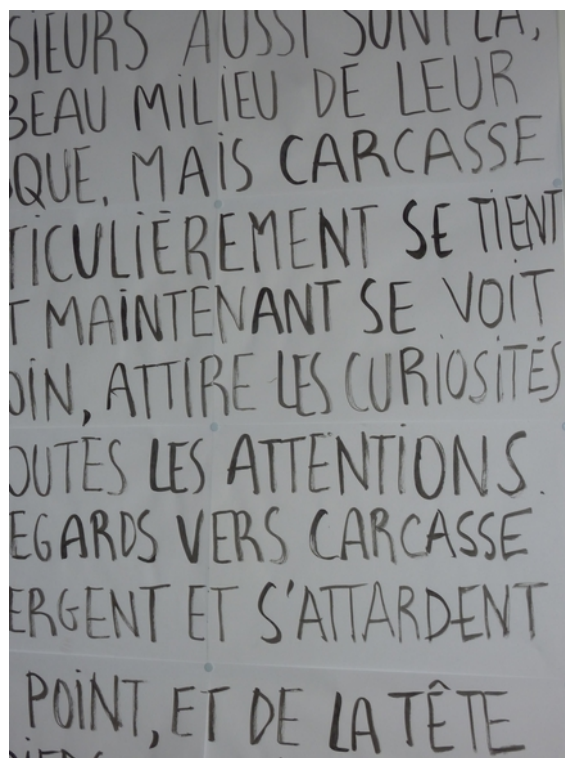 SIEURS AUSSI SONT LÀ,
BEAU MILIEU DE LEUR
QUE. MAIS CARCASSE
TICULIÈREMENT SE TIENT
T MAINTENANT SE VOIT
OIN, ATTIRE LES CURIOSITÉS
OUTES LES ATTENTIONS.
EGARDS VERS CARCASSE
ERGENT ET S'ATTARDENT
POINT, ET DE LA TÊTE